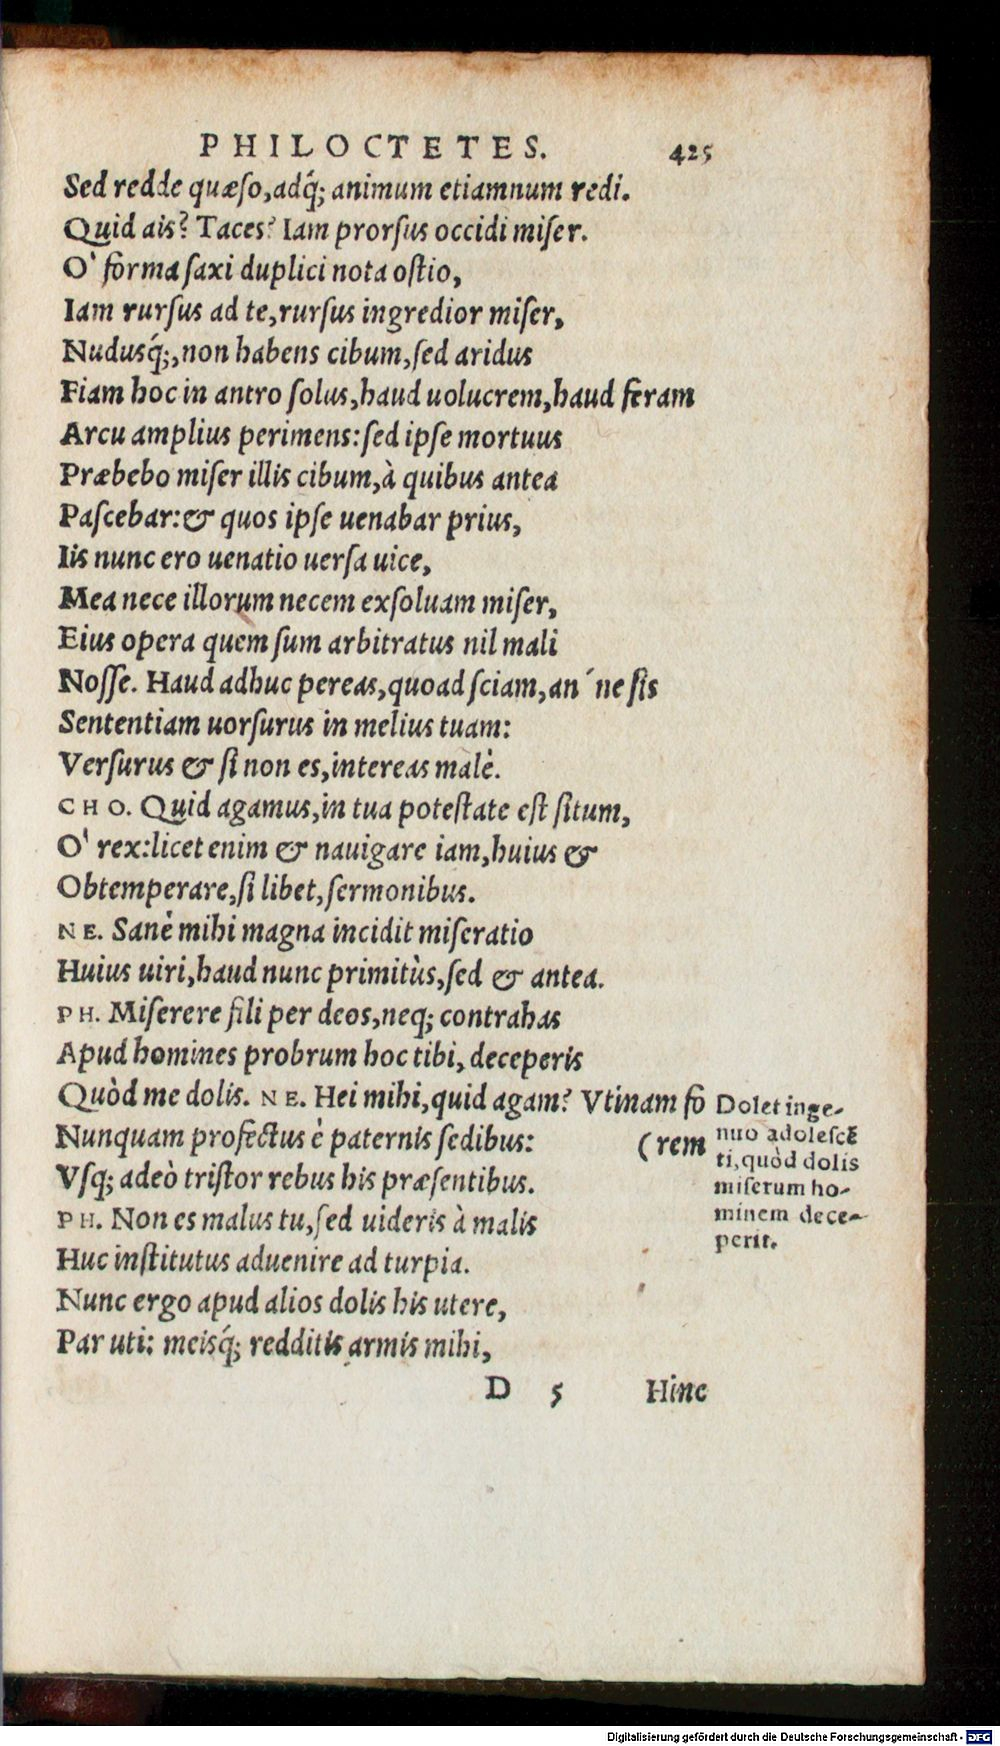 PHILOCTETES. 425
Sed redde quæſo,adq́; animum etiamnum redi.
Quid ais? Taces? Iam prorſus occidi miſer.
O' forma ſaxi duplici nota oſtio,
Iam rurſus ad te,rurſus ingredior miſer,
Nudusq́;,non habens cibum,ſed aridus
Fiam hoc in antro ſolus,haud uolucrem,haud feram
Arcu amplius perimens:ſed ipſe mortuus
Præbebo miſer illis cibum,à quibus antea
Paſcebar:& quos ipſe uenabar prius,
Iis nunc ero uenatio uerſa uice,
Mea nece illorum necem exſoluam miſer,
Eius opera quem ſum arbitratus nil mali
Noſſe. Haud adhuc pereas,quoad ſciam,an´ne ſis
Sententiam uorſurus in melius tuam:
Verſurus & ſi non es,intereas malè.
CHO. Quid agamus,in tua poteſtate eſt ſitum,
O' rex:licet enim & nauigare iam,huius &
Obtemperare,ſi libet,ſermonibus.
NE. Sanè mihi magna incidit miſeratio
Huius uiri,haud nunc primitùs,ſed & antea.
PH. Miſerere fili per deos,neq; contrahas
Apud homines probrum hoc tibi, deceperis
Quòd me dolis. NE. Hei mihi,quid agam? Vtinam fo
(rem
Nunquam profectus è paternis ſedibus:
Vſq; adeò triſtor rebus his præſentibus.
PH. Non es malus tu,ſed uideris à malis
Huc inſtitutus aduenire ad turpia.
Nunc ergo apud alios dolis his utere,
Par uti: meisq́; redditis armis mihi,
Dolet inge-
nuo adoleſcē
ti,quòd dolis
miſerum ho-
minem dece-
perit.
D 5 Hinc
Digitalisierung gefördert durch die Deutsche Forschungsgemeinschaft - DFG